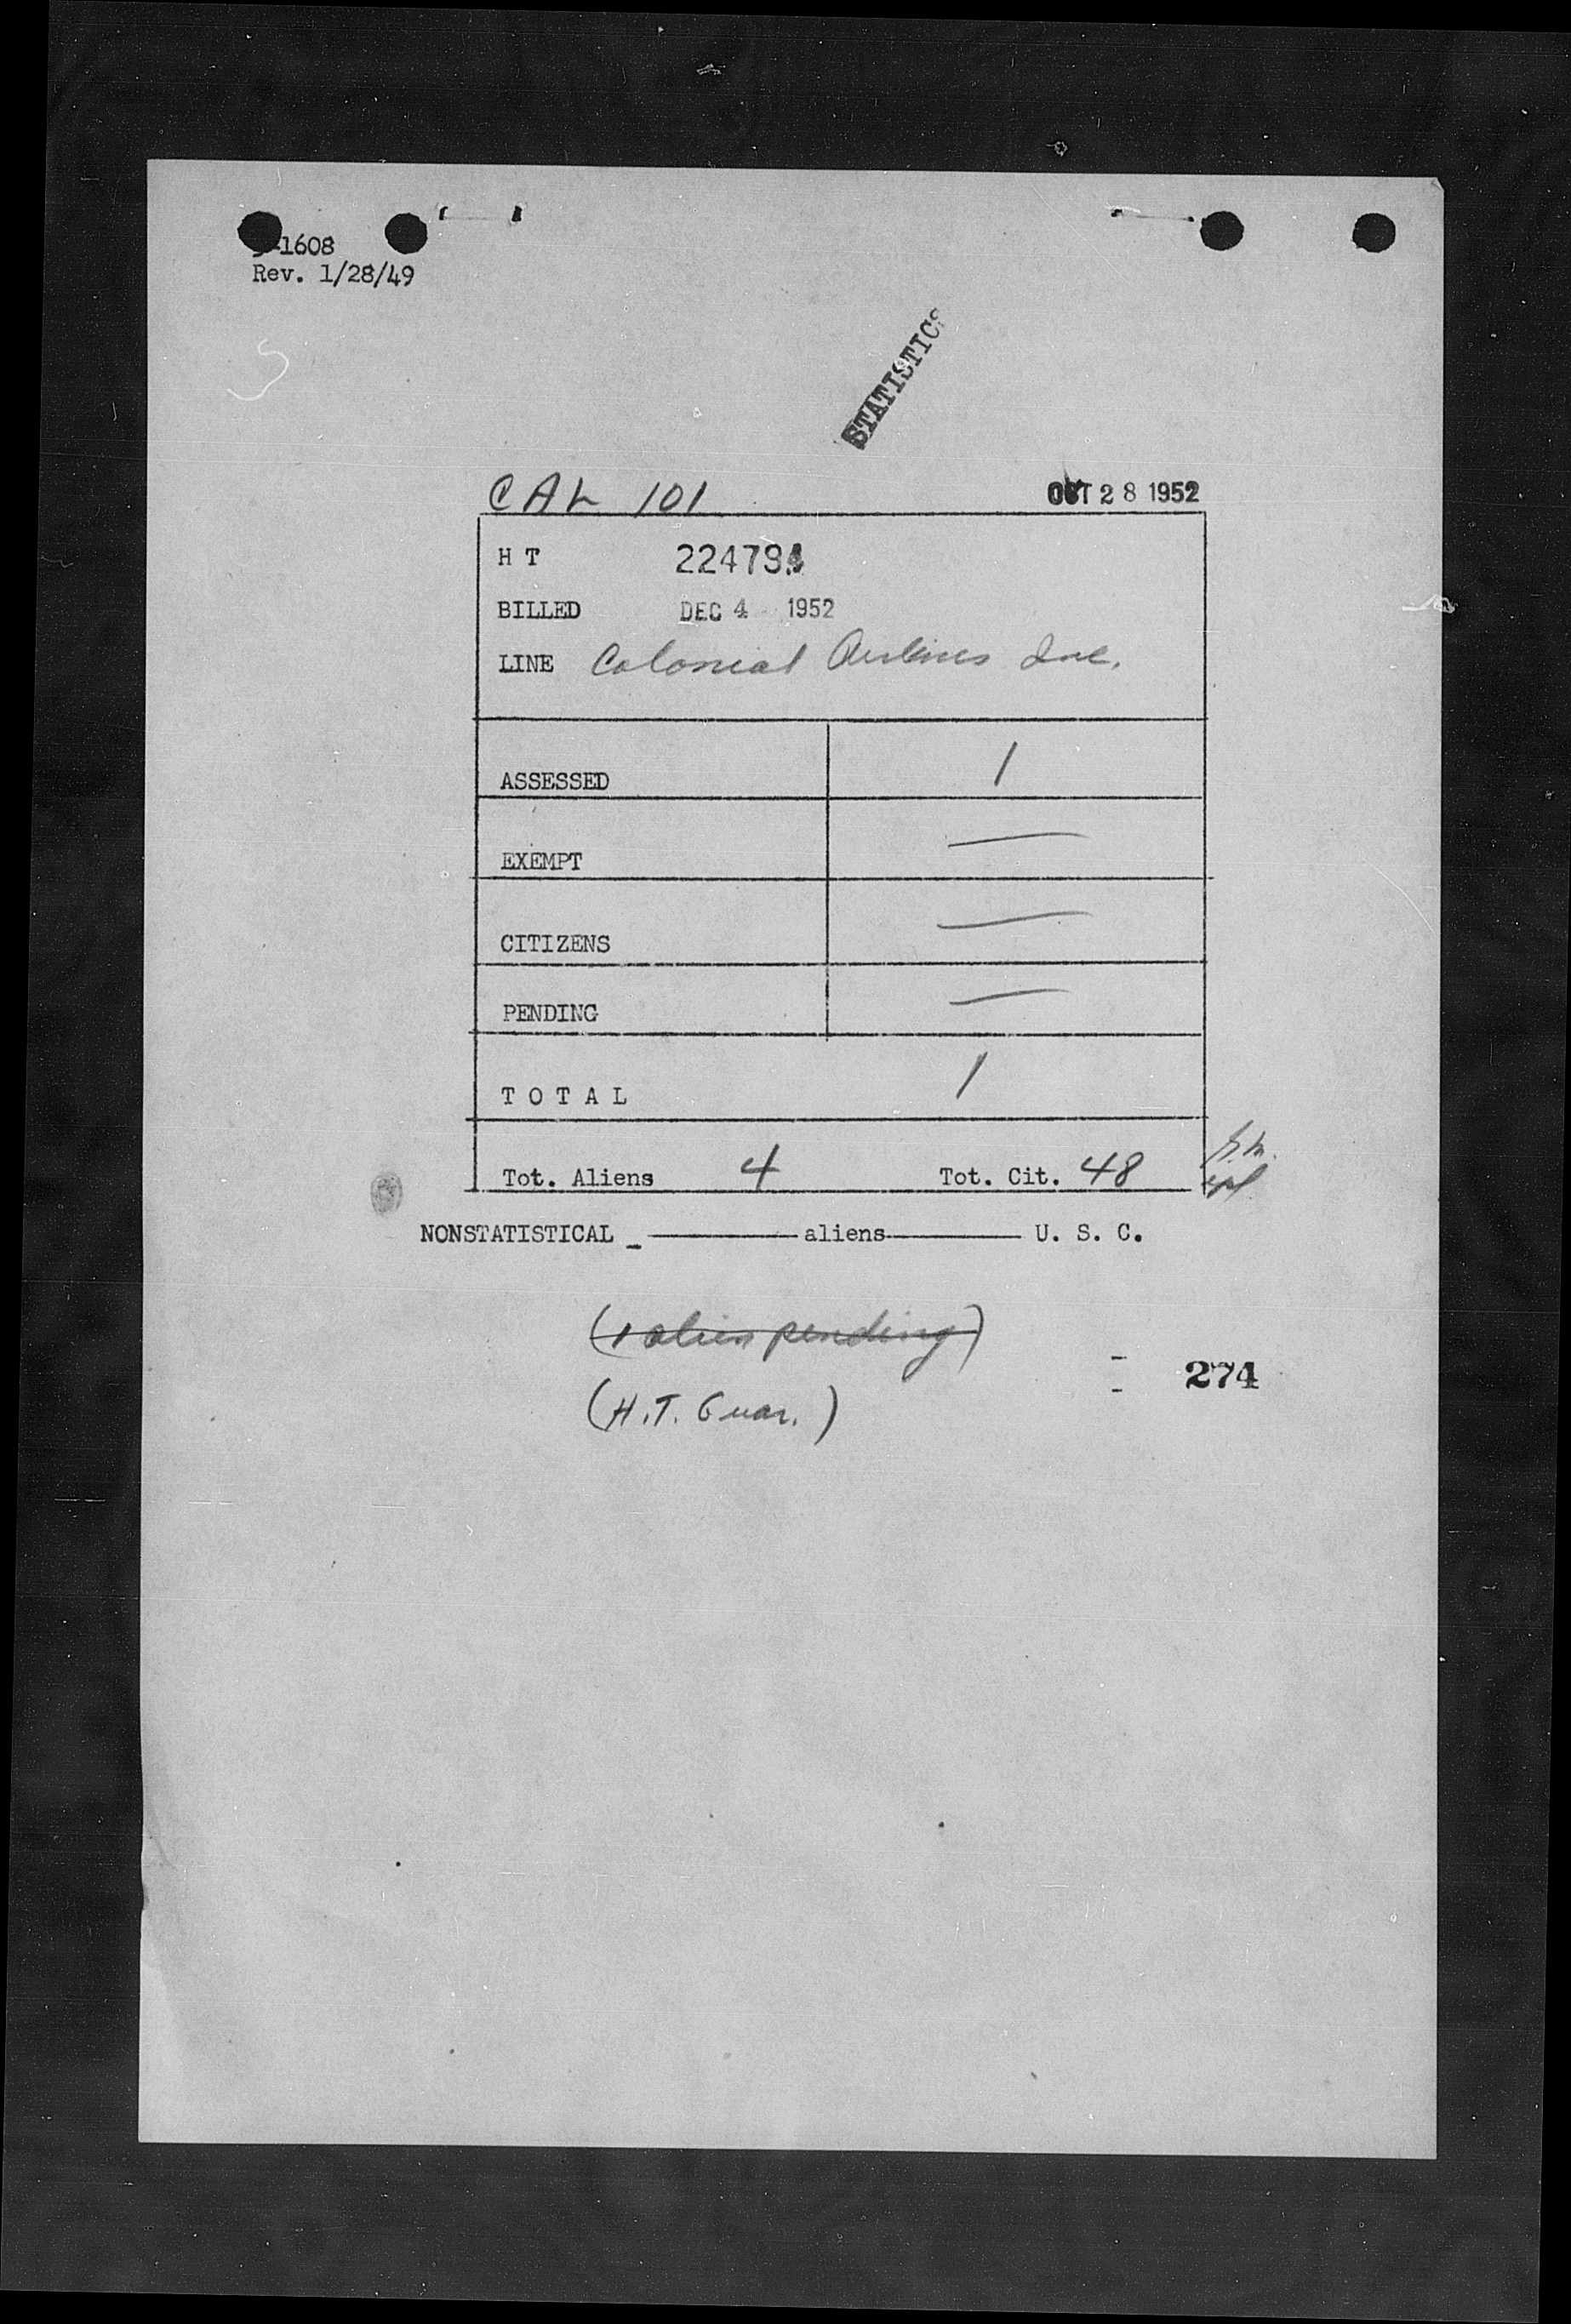 -1608
Rev. 1/28/49
STATISTICS
CAL 101 OCT 28 1952
H T
BILLED DEC 4 1952
LINE Colonial Airlines Inc.
ASSESSED 1
EXEMPT —
CITIZENS —
PENDING —
T O T A L 1
Tot. Aliens 4 Tot. Cit. 48
NONSTATISTICAL _ ———— aliens ———— U. S. C.
(1 alien pending)
274
(H.T. Guar.)